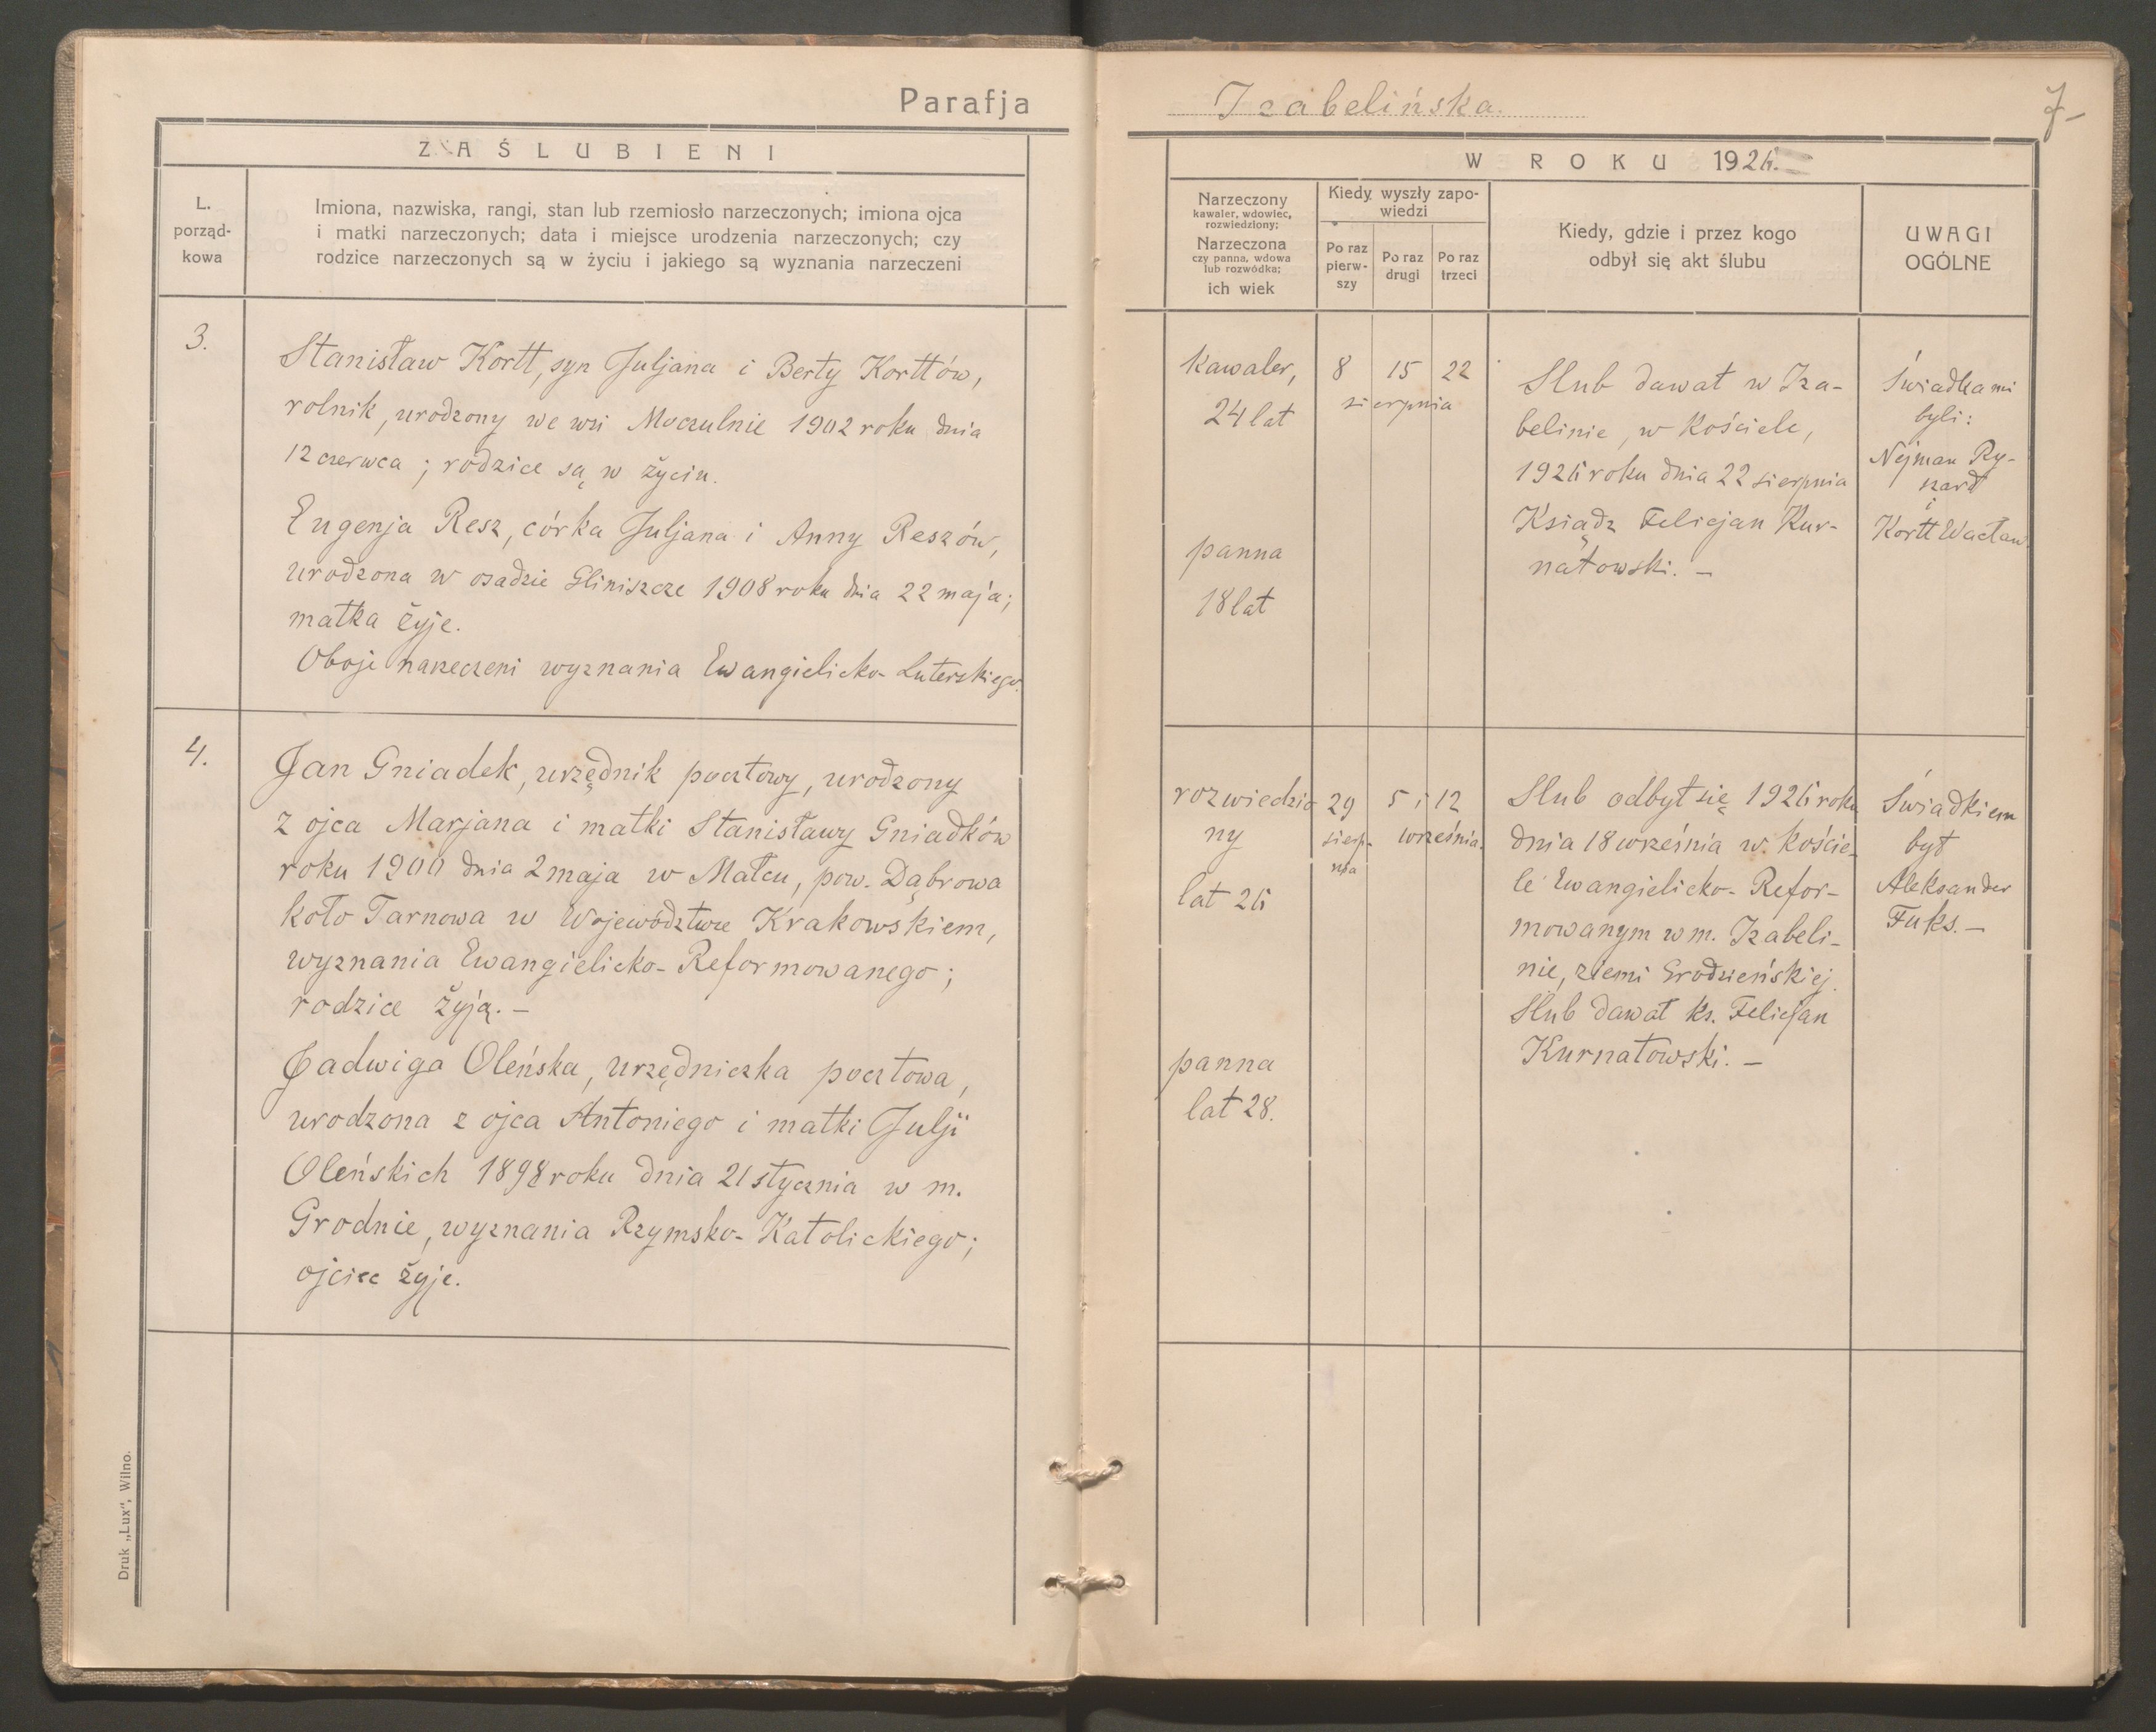 Parafja
ZAŚLUBIENI
L.
porząd-
kowa
Imiona, nazwiska, rangi, stan lub rzemiosło narzeczonych; imiona ojca
i matki narzeczonych; data i miejsce urodzenia narzeczonych; czy
rodzice narzeczonych są w życiu i jakiego są wyznania narzeczeni
3.
Stanisław Kortt, syn Juljana i Berty Korttów,
rolnik, urodzony we wsi Moczulnie 1902 roku dnia
12 czerwca; rodzice są w życiu.
Eugenja Resz, córka Juljana i Anny Reszów,
urodzona w osadzie Gliniszcze 1908 roku dnia 22 maja;
matka żyje.
Oboje narzeczeni wyznania Ewangielicko-Luterskiego.
4.
Jan Gniadek, urzędnik pocztowy, urodzony
z ojca Marjana i matki Stanisławy Gniadków
roku 1900 dnia 2 maja w Malcu, pow. Dąbrowa
koło Tarnowa w Województwie Krakowskiem,
wyznania Ewangielicko-Reformowanego;
rodzice żyją. -
Jadwiga Oleńska, urzędniczka pocztowa,
urodzona z ojca Antoniego i matki Julji
Oleńskich 1898 roku dnia 21 stycznia w m.
Grodnie, wyznania Rzymsko-Katolickiego;
ojciec żyje.
Druk „Lux", Wilno.
Izabelińska.
7-
W ROKU 1926.
Narzeczony
kawaler, wdowiec,
rozwiedziony;
Narzeczona
czy panna, wdowa
lub rozwódka;
ich wiek
Kiedy wyszły zapo-
wiedzi
Po raz
pierw-
szy
Po raz
drugi
Po raz
trzeci
Kiedy, gdzie i przez kogo
odbył się akt ślubu
UWAGI
OGÓLNE
kawaler,
24 lat
panna
18 lat
8 15 22
sierpnia
Slub dawał w Iza-
belinie, w Kościele,
1926 roku dnia 22 sierpnia
Ksiądz Felicjan Kur-
natowski. -
Świadkami
byli:
Nejman Ry-
szard
i
Kortt Wacław.
rozwiedzio
ny
lat 26
panna
lat 28.
29
sierp-
nia
5 i 12
września.
Slub odbył się 1926 roku
dnia 18 września w Koście-
le Ewangielicko-Refor-
mowanym w m. Izabeli-
nie, ziemi Grodzieńskiej.
Slub dawał ks. Felicjan
Kurnatowski. -
Świadkiem
był
Aleksander
Fuks. -